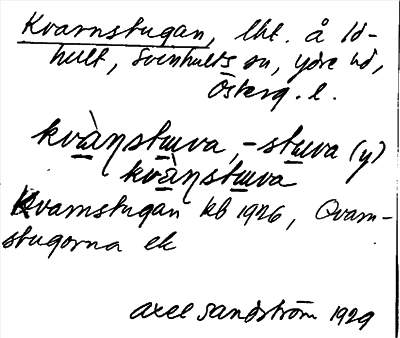 Kvarnstugan, lht. å Id-
hult, Svenhults sn, Ydre hd,
Österg. l.
kvàṇstɯva, -stɯva (y)
kvàṇstɯva
Kvarnstugan kb 1926, Qvarn-
stugorna ek
Axel Sandström 1929